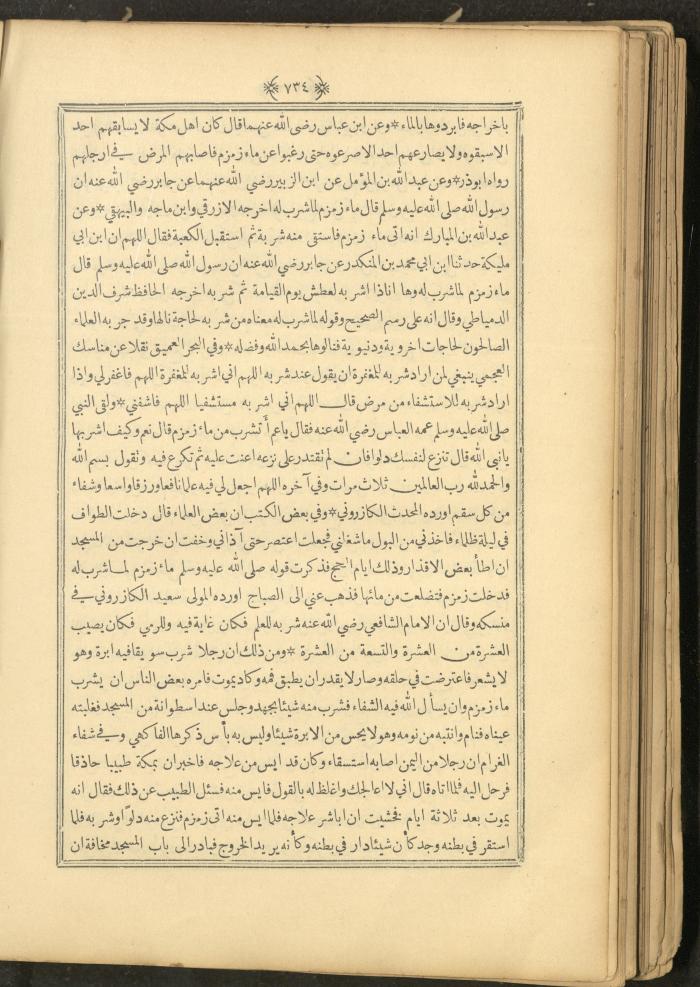 ٧٣٤
باخراجه فابردوها بالماء * وعن ابن عباس رضى الله عنهما قال كان اهل مكة لا يسابقهم احد
الا سبقوه ولا يصارعهم احد الا صرعوه حتى رغبوا عن ماء زمزم فاصابهم المرض في ارجلهم
رواه ابوذر * وعن عبد الله بن المؤمل عن ابن الزبير رضي الله عنهما عن جابر رضي الله عنه ان
رسول الله صلى الله عليه وسلم قال ماء زمزم لما شرب له اخرجه الازرقي وابن ماجه والبيهقي * وعن
عبد الله بن المبارك انه اتى ماء زمزم فاستقى منه شربة ثم استقبل الكعبة فقال اللهم ان ابن ابي
مليكة حدثنا ابن ابي محمد بن المنكدر عن جابر رضي الله عنه ان رسول الله صلى الله عليه وسلم قال
ماء زمزم لما شرب له وها انا ذا اشربه لعطش يوم القيامة ثم شربه اخرجه الحافظ شرف الدين
الدمياطي وقال انه على رسم الصحيح وقوله لما شرب له معناه من شربه لحاجة نالها وقد جربه العلماء
الصالحون لحاجات اخروية ودنيوية فنالوها بحمد الله وفضله * وفي البحر العميق نقلا عن مناسك
العجمي ينبغي لمن اراد شربه للمغفرة ان يقول عند شربه اللهم اني اشربه للمغفرة اللهم فاغفر لي واذا
اراد شربه للاستشفاء من مرض قال اللهم اني اشربه مستشفيا اللهم فاشفني * ولقى النبي
صلى الله عليه وسلم عمه العباس رضي الله عنه فقال يا عم أتشرب من ماء زمزم قال نعم وكيف اشربها
يا نبى الله قال تنزع لنفسك دلوا فان لم تقتدر على نزعه اعنت عليه ثم تكرع فيه وتقول بسم الله
والحمد لله رب العالمين ثلاث مرات وفي آخره اللهم اجعل لي فيه علما نافعا ورزقا واسعا وشفاء
من كل سقم اورده المحدث الكازروني * وفي بعض الكتب ان بعض العلماء قال دخلت الطواف
في ليلة ظلماء فاخذني من البول ما شغلني فجعلت اعتصر حتى آذاني وخفت ان خرجت من المسجد
ان اطأ بعض الاقذار وذلك ايام الحج فذكرت قوله صلى الله عليه وسلم ماء زمزم لما شرب له
فدخلت زمزم فتضلعت من مائها فذهب عني الى الصباح اورده المولى سعيد الكازروني في
منسكه وقال ان الامام الشافعي رضي الله عنه شربه للعلم فكان غاية فيه وللرمي فكان يصيب
العشرة من العشرة والتسعة من العشرة * ومن ذلك ان رجلا شرب سويقا فيه ابرة وهو
لا يشعر فاعترضت في حلقه وصار لا يقدر ان يطبق فمه وكاد يموت فامره بعض الناس ان يشرب
ماء زمزم وان يسأل الله فيه الشفاء فشرب منه شيئا بجهد وجلس عند اسطوانة من المسجد فغلبته
عيناه فنام وانتبه من نومه وهو لا يحس من الابرة شيئا وليس به بأس ذكرها الفاكهي وفي شفاء
الغرام ان رجلا من اليمن اصابه استسقاء وكان قد ايس من علاجه فاخبر ان بمكة طبيبا حاذقا
فرحل اليه فلما اتاه قال اني لا اعالجك واغلظ له بالقول فايس منه فسئل الطبيب عن ذلك فقال انه
يموت بعد ثلاثة ايام فخشيت ان اباشر علاجه فلما ايس منه اتى زمزم فنزع منه دلوا وشربه فلما
استقر في بطنه وجد كأن شيئا دار في بطنه وكأنه يريد الخروج فبادر الى باب المسجد مخافة ان